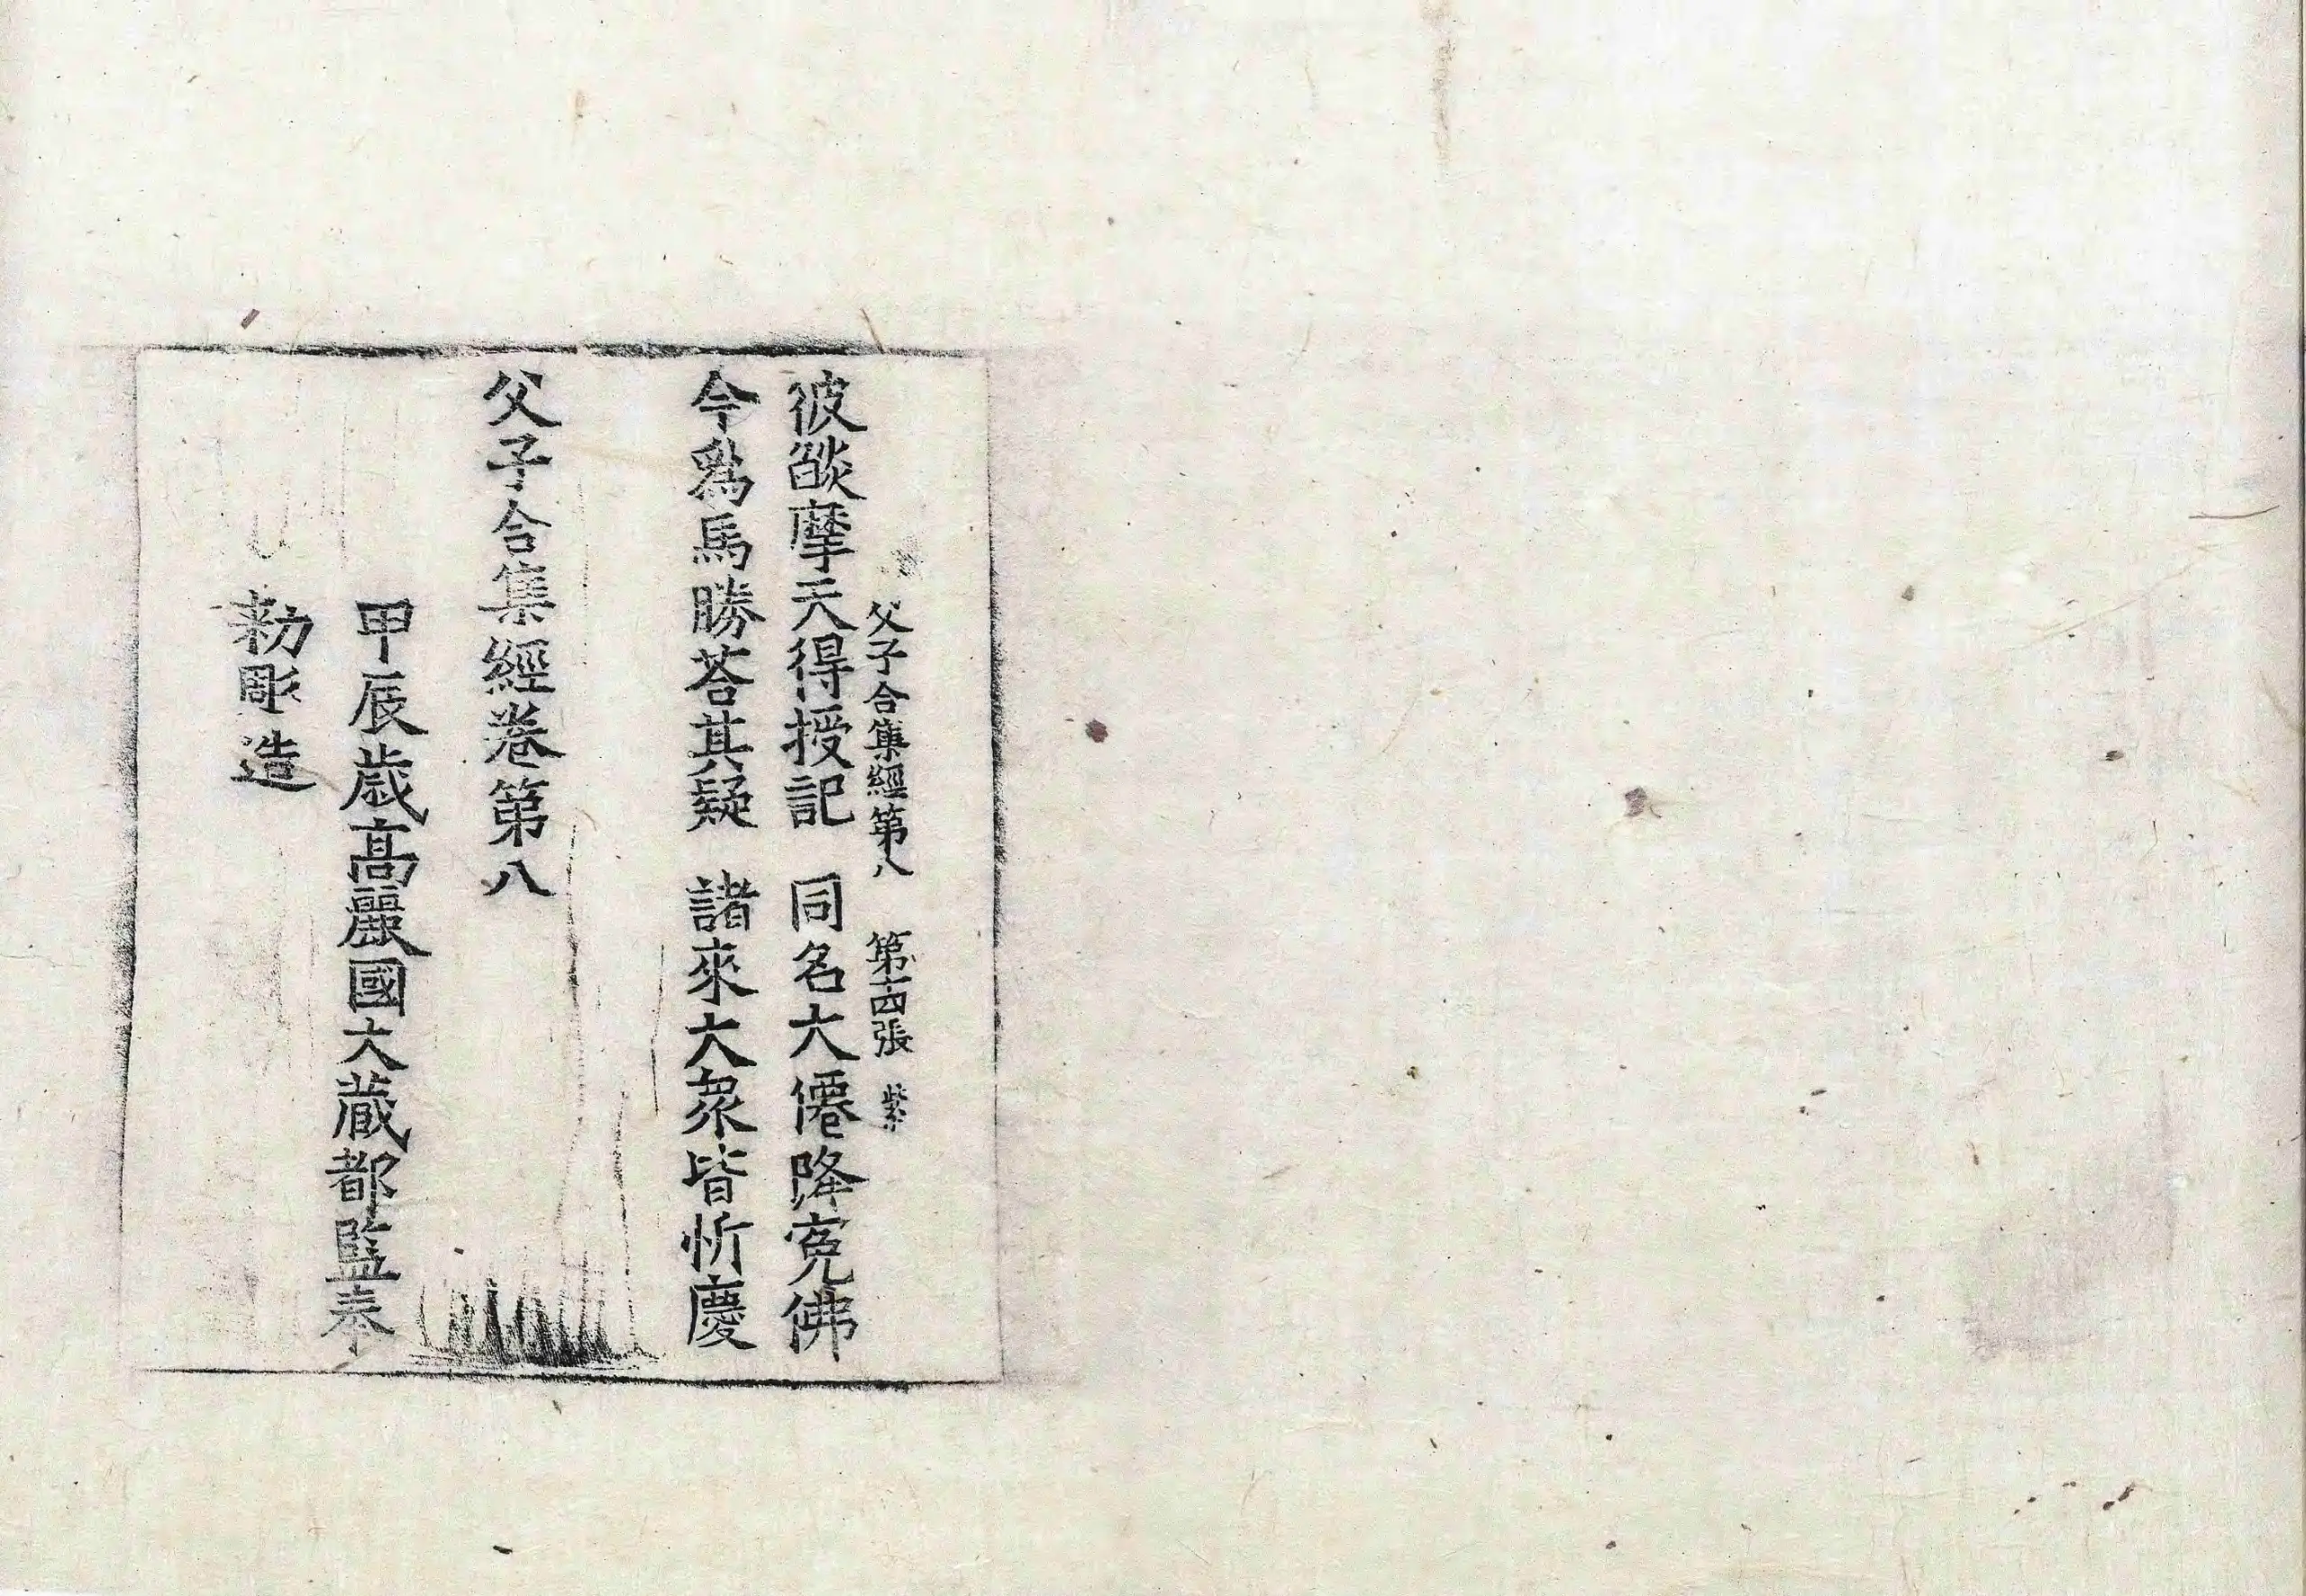 父子合集經第八 第十四張 紫
彼燄摩天得授記 同名大僊降寃佛
今爲馬勝荅其疑 諸來大衆皆忻慶
父子合集經卷第八
甲辰歳高麗國大藏都監奉
勑彫造